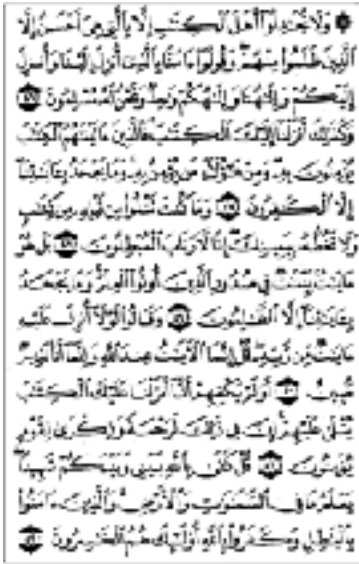 ۞ وَلَا تُجَٰدِلُوٓا۟ أَهْلَ ٱلْكِتَٰبِ إِلَّا بِٱلَّتِى هِىَ أَحْسَنُ إِلَّا
ٱلَّذِينَ ظَلَمُوا۟ مِنْهُمْ وَقُولُوٓا۟ ءَامَنَّا بِٱلَّذِىٓ أُنزِلَ إِلَيْنَا وَأُنزِلَ
إِلَيْكُمْ وَإِلَٰهُنَا وَإِلَٰهُكُمْ وَٰحِدٌ وَنَحْنُ لَهُۥ مُسْلِمُونَ ۝٤٦
وَكَذَٰلِكَ أَنزَلْنَآ إِلَيْكَ ٱلْكِتَٰبَ فَٱلَّذِينَ ءَاتَيْنَٰهُمُ ٱلْكِتَٰبَ
يُؤْمِنُونَ بِهِۦ وَمِنْ هَٰٓؤُلَآءِ مَن يُؤْمِنُ بِهِۦ وَمَا يَجْحَدُ بِـَٔايَٰتِنَآ
إِلَّا ٱلْكَٰفِرُونَ ۝٤٧ وَمَا كُنتَ تَتْلُوا۟ مِن قَبْلِهِۦ مِن كِتَٰبٍ
وَلَا تَخُطُّهُۥ بِيَمِينِكَ إِذًا لَّٱرْتَابَ ٱلْمُبْطِلُونَ ۝٤٨ بَلْ هُوَ
ءَايَٰتٌۢ بَيِّنَٰتٌ فِى صُدُورِ ٱلَّذِينَ أُوتُوا۟ ٱلْعِلْمَ وَمَا يَجْحَدُ
بِـَٔايَٰتِنَآ إِلَّا ٱلظَّٰلِمُونَ ۝٤٩ وَقَالُوا۟ لَوْلَآ أُنزِلَ عَلَيْهِ
ءَايَٰتٌ مِّن رَّبِّهِۦ قُلْ إِنَّمَا ٱلْءَايَٰتُ عِندَ ٱللَّهِ وَإِنَّمَآ أَنَا۠ نَذِيرٌ
مُّبِينٌ ۝٥٠ أَوَلَمْ يَكْفِهِمْ أَنَّآ أَنزَلْنَا عَلَيْكَ ٱلْكِتَٰبَ
يُتْلَىٰ عَلَيْهِمْ إِنَّ فِى ذَٰلِكَ لَرَحْمَةً وَذِكْرَىٰ لِقَوْمٍ
يُؤْمِنُونَ ۝٥١ قُلْ كَفَىٰ بِٱللَّهِ بَيْنِى وَبَيْنَكُمْ شَهِيدًا
يَعْلَمُ مَا فِى ٱلسَّمَٰوَٰتِ وَٱلْأَرْضِ وَٱلَّذِينَ ءَامَنُوا۟
بِٱلْبَٰطِلِ وَكَفَرُوا۟ بِٱللَّهِ أُو۟لَٰٓئِكَ هُمُ ٱلْخَٰسِرُونَ ۝٥٢